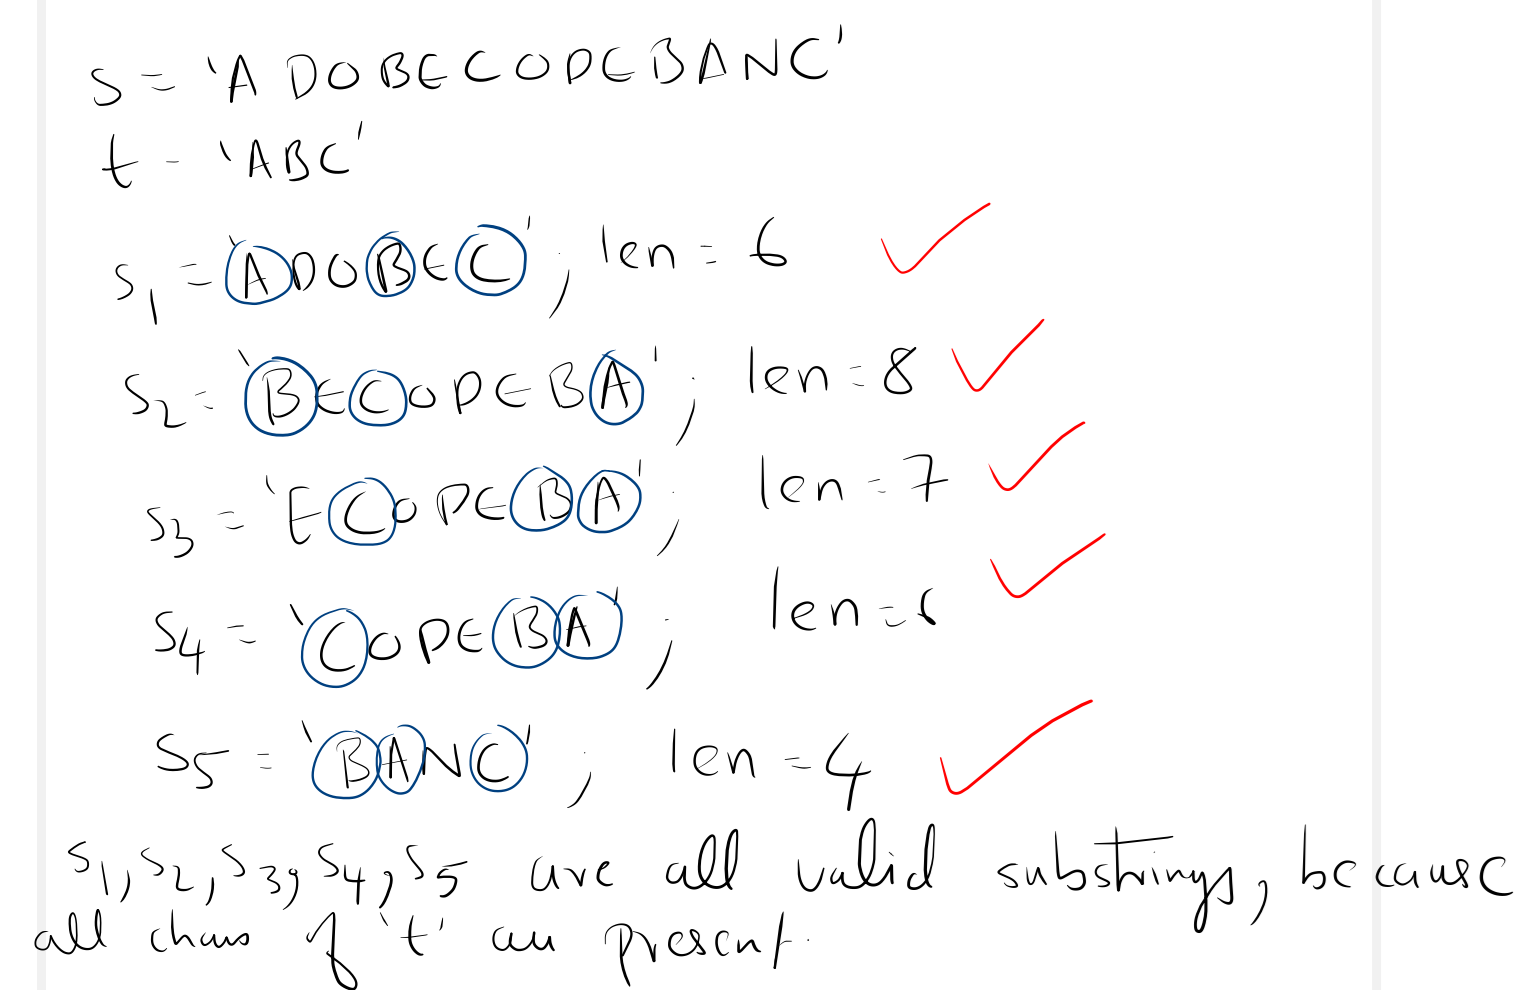 s = 'ADOBECODEBANC'
t = 'ABC'
s1 = 'ADOBEC', len = 6
s2 = 'BECODEBA'; len = 8
s3 = 'ECODEBA'; len = 7
s4 = 'CODEBA'; len = 6
s5 = 'BANC'; len = 4
s1, s2, s3, s4, s5 are all valid substrings, because
all chars of 't' are present.